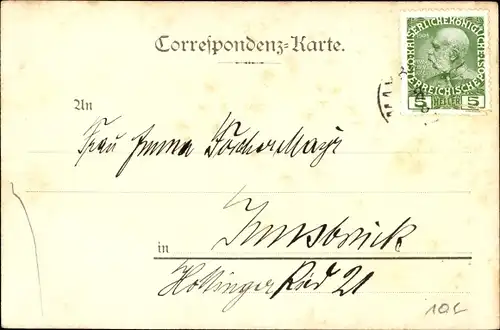 Correspondenz-Karte.
KAISERLICHE KÖNIGLICHE ÖSTERREICHISCHE
5 HELLER 5
An
Frau Emma
in
Innsbruck
Höttinger Ried 21
10€